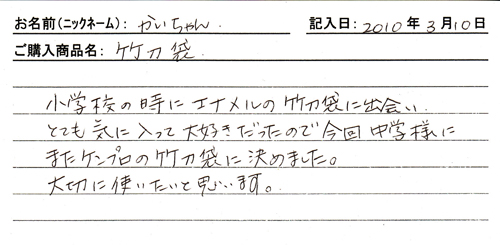 お名前（ニックネーム）： かいちゃん． 記入日：2010年3月10日
ご購入商品名： 竹刀袋
小学校の時にエナメルの竹刀袋に出会い．
とても気に入って大好きだったので今回中学様に
またケンプロの竹刀袋に決めました。
大切に使いたいと思います。